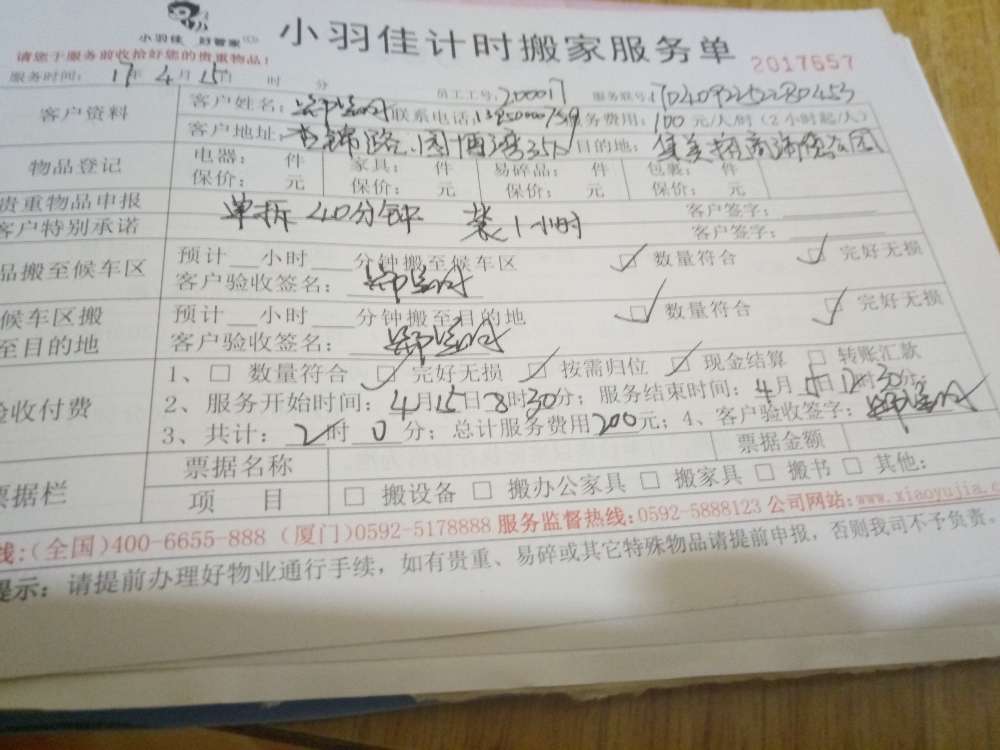 小羽佳 好管家
小羽佳计时搬家服务单
2017557
请您于服务前收拾好您的贵重物品!
服务时间: 17年 4月 15日 时 分
员工工号: 200017 服务联号:
客户资料
客户姓名: 联系电话: 务费用: 100 元/人/时(2小时起/人)
客户地址: 目的地:
物品登记
电器: 件 家具: 件 易碎品: 件 包裹: 件
保价: 元 保价: 元 保价: 元 保价: 元
贵重物品申报 客户签字:
单拆 40分钟 装1小时
客户特别承诺 客户签字:
品搬至候车区
预计 小时 分钟搬至候车区 数量符合 完好无损
客户验收签名:
候车区搬
至目的地
预计 小时 分钟搬至目的地 数量符合 完好无损
客户验收签名:
验收付费
1、□ 数量符合 完好无损 按需归位 现金结算 □ 转账汇款
2、服务开始时间: 4月15日8时30分; 服务结束时间: 4月 日 时30分;
3、共计: 2时 0分; 总计服务费用200元; 4、客户验收签字:
票据栏
票据名称 票据金额
项 目 □ 搬设备 □ 搬办公家具 □ 搬家具 □ 搬书 □ 其他:
线:(全国)400-6655-888 (厦门)0592-5178888 服务监督热线:0592-5888123 公司网站:www.xiaoyujia.c
提示: 请提前办理好物业通行手续, 如有贵重、易碎或其它特殊物品请提前申报, 否则我司不予负责。